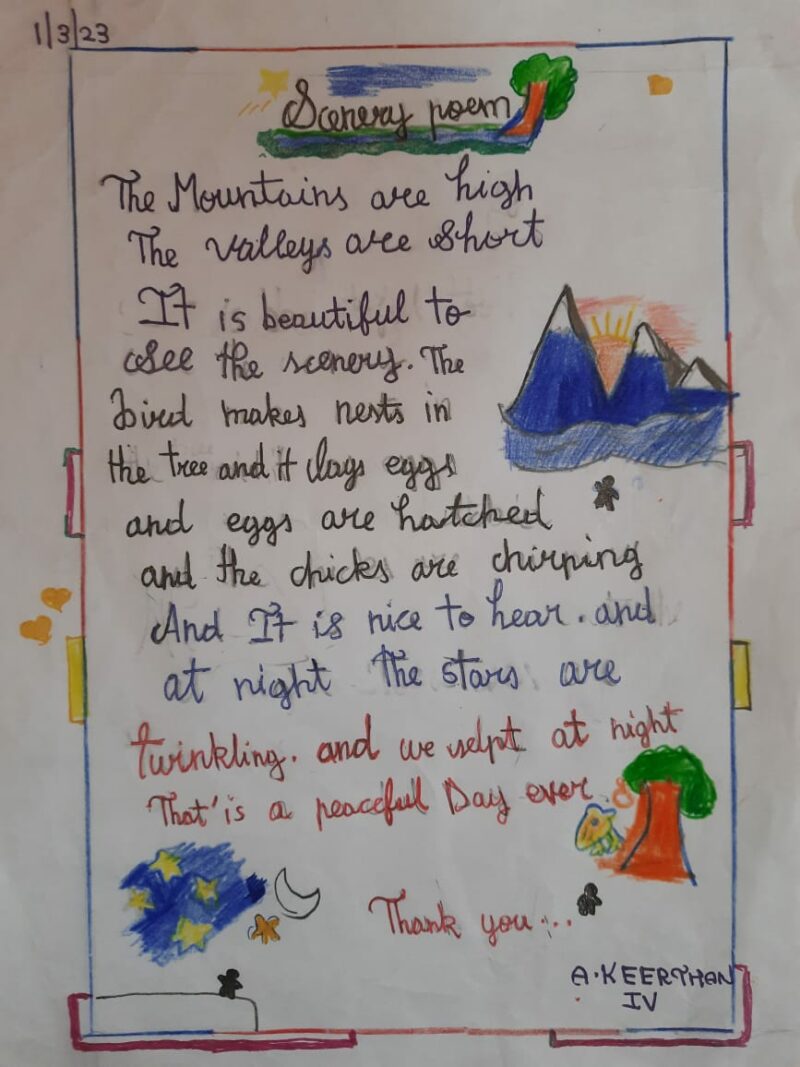 1/3/23
Scenery poem
The Mountains are high
The valleys are short
It is beautiful to
see the scenery. The
bird makes nests in
the tree and it lays eggs
and eggs are hatched
and the chicks are chirping
And It is nice to hear. and
at night the stars are
twinkling. and we selpt at night
That'is a peaceful Day ever
Thank you...
A. KEERTHAN
IV